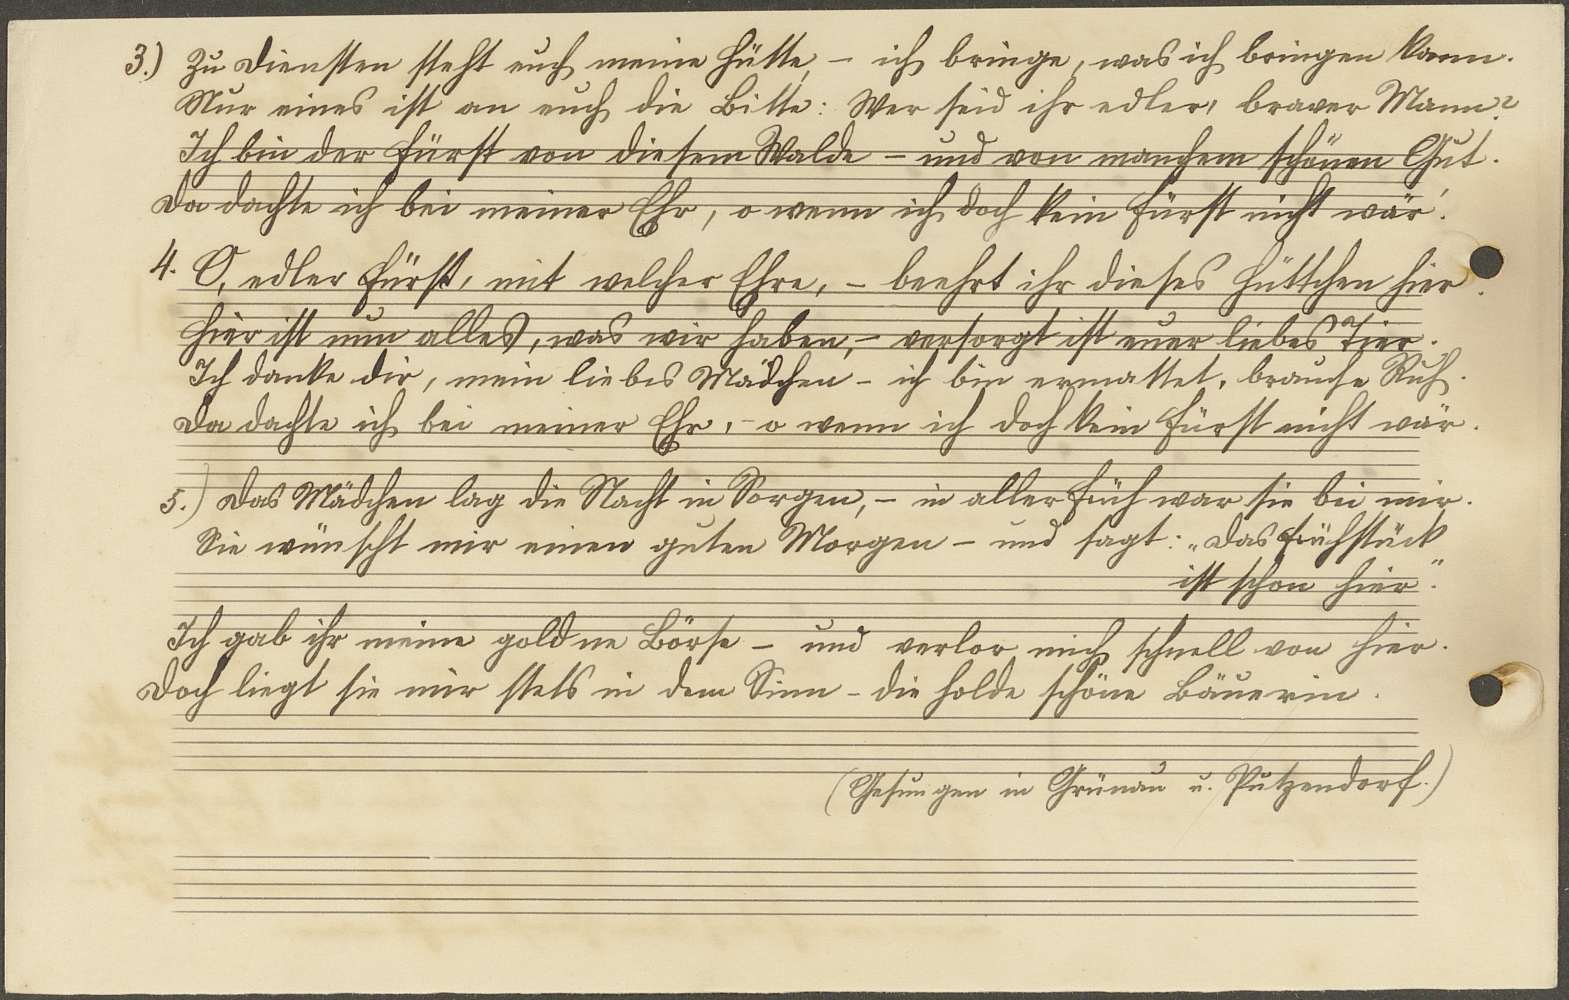 3.) Zu Diensten steht euch meine Hütte, – ich bringe, was ich bringen kann.
Nur eines ist an euch die Bitte: Wer seid ihr edler, braver Mann?
Ich bin der Fürst von diesem Walde – und von manchem schönen Gut.
Da dachte ich bei meiner Ehr, o wenn ich doch kein Fürst nicht wär'.
4. O, edler Fürst, mit welcher Ehre, – beehrt ihr dieses Hüttchen hier.
Hier ist nun alles, was wir haben, – versorgt ist euer liebes Tier.
Ich danke dir, mein liebes Mädchen – ich bin ermattet, brauche Ruh.
Da dachte ich bei meiner Ehr, – o wenn ich doch kein Fürst nicht wär.
5.) Das Mädchen lag die Nacht in Sorgen, – in aller Früh war sie bei mir.
Sie wünscht mir einen guten Morgen – und sagt: „Das Frühstück
ist schon hier".
Ich gab ihr meine goldne Börse – und verlor mich schnell von hier.
Doch liegt sie mir stets in dem Sinn – die holde schöne Bäuerin.
(Gesungen in Grünau u. Putzendorf.)